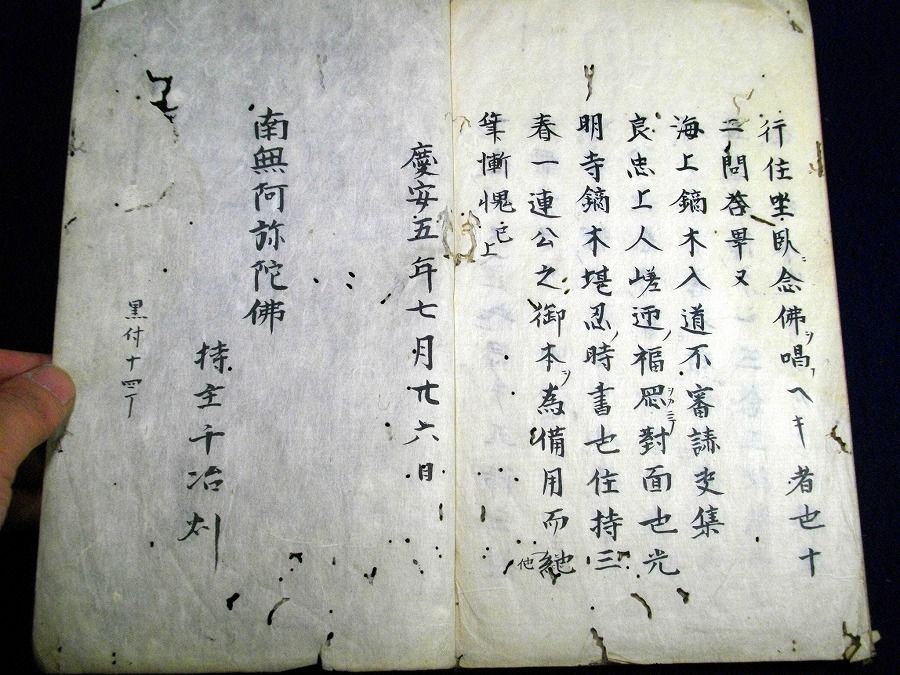 行住坐臥ニ念佛ヲ唱フヘキ者也十
二問答畢又
海上鏑木入道不審請文集
良忠上人嵯迊福原對面也光
明寺鏑木堪忍ノ時書也住持三
春一連公之御本ヲ為備用而
筆慚愧已上
慶安五年七月廿六日
南無阿弥陀佛
持主千冶
黒付十四丁